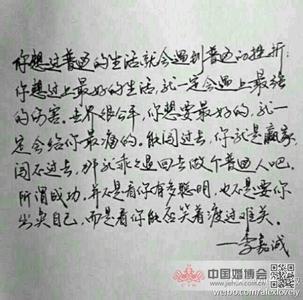 你想过普通的生活,就会遇到普通的挫折。
你想过上最好的生活,就一定会遇上最强
的伤害。世界很公平,你想要最好的,就一
定会给你最痛的。能闯过去,你就是赢家,
闯不过去,那就乖乖退回去做个普通人吧。
所谓成功,并不是看你有多聪明,也不是要你
出卖自己,而是看你能否笑着渡过难关。
—李嘉诚
中国婚博会
www.jiehun.com.cn
weibo.com/alexlovely